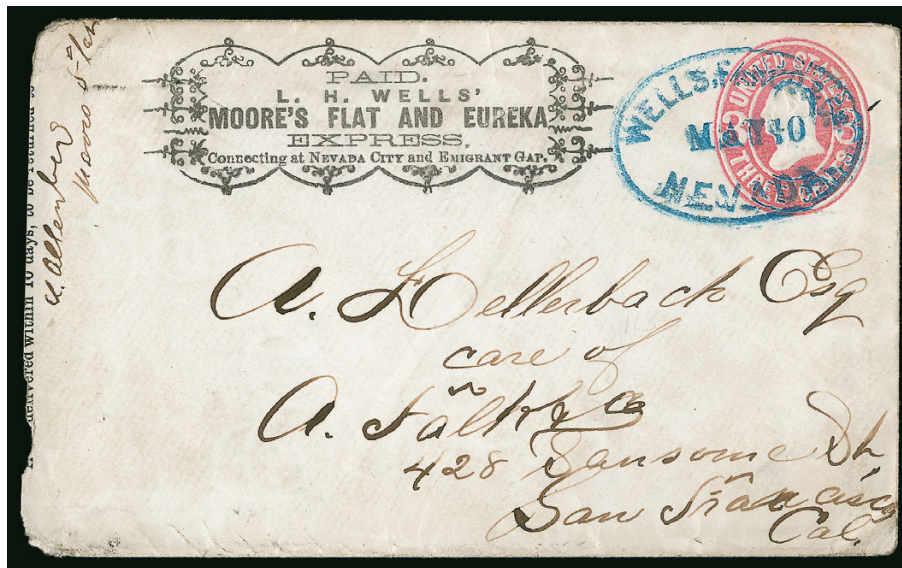 PAID.
L. H. WELLS'
MOORE'S FLAT AND EUREKA
EXPRESS,
Connecting at NEVADA CITY and EMIGRANT GAP.
WELLS,
MAY 10
NEVADA
UNITED STATES
THREE CENTS
A. Hellerbach Esq
care of
A. Falk & Co
428 Sansome St
San Francisco
Cal.
delivered within 10 days, to be returned to
A Allenberg
Moores Flat